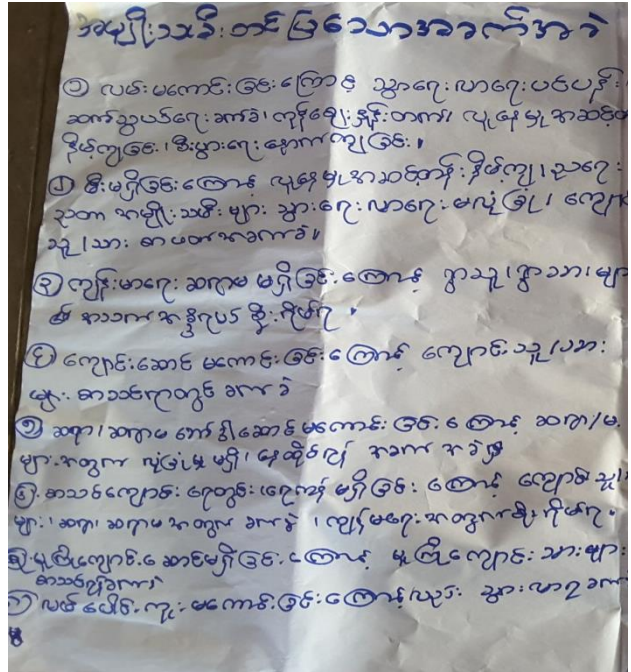 အမျိုးသမီးတင်ပြသောအခက်အခဲ
၁ လမ်းမကောင်းခြင်းကြောင့် သွားရေးလာရေးပင်ပန်း၊
ဆက်သွယ်ရေးခက်ခဲ၊ ကုန်ဈေးနှုန်းတက်၊ လူနေမှုအဆင့်
နိမ့်ကျခြင်း၊ စီးပွားရေးနောက်ကျခြင်း၊
၂ မီးမရှိခြင်းကြောင့် လူနေမှုအဆင့်တန်းနိမ့်ကျ၊ ပညာရေး
ညဘက် အမျိုးသမီးများ သွားရေးလာရေးမလုံခြုံ၊ ကျောင်း
သူ/သား စာဖတ်အခက်ခဲ၊
၃ ကျန်းမာရေးဆရာမ မရှိခြင်းကြောင့် ရွာသူ/ရွာသားများ
အသက်အန္တရာယ် စိုးရိမ်ရ၊
၄ ကျောင်းဆောင်မကောင်းခြင်းကြောင့် ကျောင်းသူ/သား
များ စာသင်ရာတွင် ခက်ခဲ
၅ ဆရာ၊ ဆရာမဘော်ဒါဆောင်မကောင်းခြင်းကြောင့် ဆရာ/မ
များအတွက် လုံခြုံမှုမရှိ၊ နေထိုင်ရန် အခက်အခဲရှိ
၆ စာသင်ကျောင်းရေတွင်း၊ ရေကန်မရှိခြင်းကြောင့် ကျောင်းသူ/
များ၊ ဆရာ၊ ဆရာမအတွက်ခက်ခဲ၊ ကျန်းမာရေးအတွက်စိုးရိမ်ရ၊
မူကြိုကျောင်းဆောင်မရှိခြင်းကြောင့် မူကြိုကျောင်းသားများ
စာသင်ရန်ခက်ခဲ
လမ်း ပေါင်းကူးမကောင်းခြင်းကြောင့် သွားလာရခက်